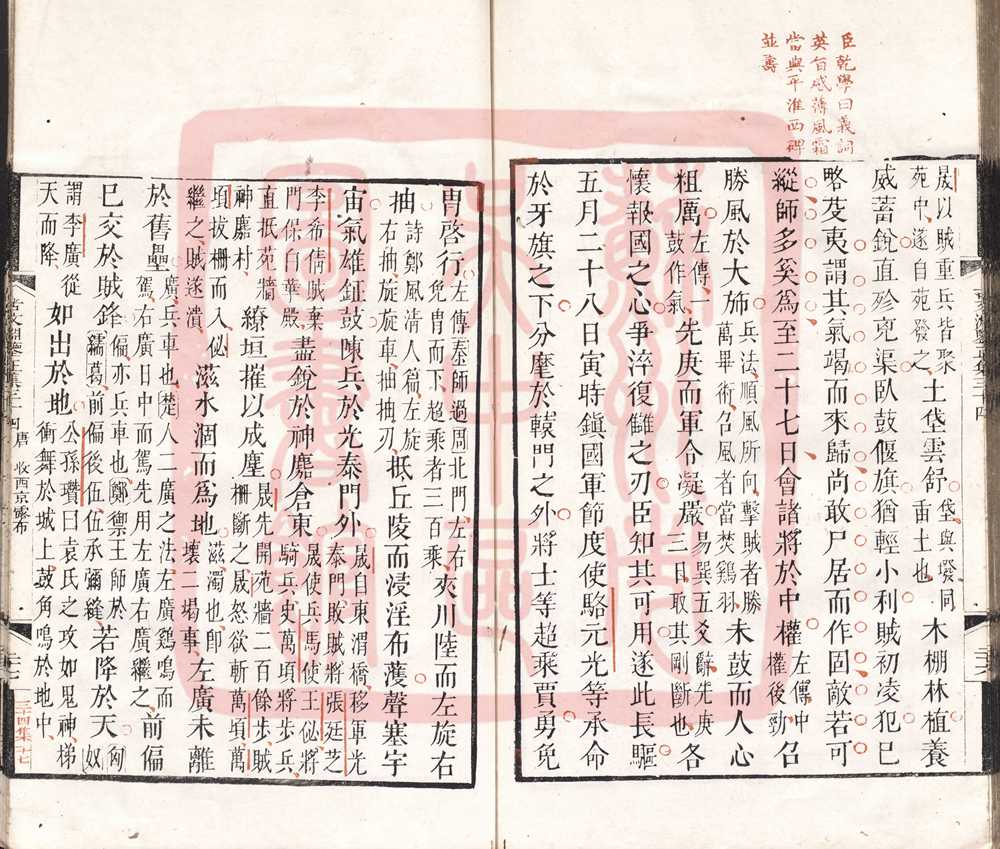 臣乾學曰義詞
英自感薄風霜
當與平淮西碑
並壽
晟以賊重兵皆聚苑中遂自苑發之土垡雲舒垡與墢同臿土也木柵林植養
威蓄銳直殄克渠臥鼓偃旗猶輕小利賊初凌犯已
略芟夷謂其氣竭而來歸尚敢尸居而作固敵若可
縱師多奚為至二十七日會諸將於中權左傳中權後勁召
勝風於大斾兵法順風所向擊賊者勝萬畢術召風者當焚鷄羽未鼓而人心
粗厲左傳一鼓作氣先庚而軍令凝嚴易巽五爻辭先庚三日取其剛斷也各
懷報國之心爭淬復讎之刃臣知其可用遂此長驅
五月二十八日寅時鎮國軍節度使駱元光等承命
於牙旗之下分麾於轅門之外將士等超乘賈勇免
冑啓行左傳秦師過周北門左右免冑而下超乘者三百乘夾川陸而左旋右
抽詩鄭風清人篇左旋右抽旋旋車抽抽刃抵丘陵而浸淫布濩聲塞宇
宙氣雄鉦鼓陳兵於光泰門外晟自東渭橋移軍光泰門敗賊將張廷芝
李希倩賊棄門保白華殿盡銳於神麚倉東晟使兵馬使王佖將騎兵史萬頃將步兵
直抵苑牆神麚村繚垣摧以成塵晟先開苑牆二百餘步賊柵斷之晟怒欲斬萬頃萬
頃拔柵而入佖繼之賊遂潰滋水涸而為地滋濁也卽壞二場事左廣未離
於舊壘廣兵車也楚人二廣之法左廣鷄鳴而駕右廣日中而駕先用左廣右廣繼之前偏
巳交於賊鋒偏亦兵車也鄭禦王師於繻葛前偏後伍伍承彌縫若降於天匈奴
謂李廣從天而降如出於地公孫瓚曰袁氏之攻如鬼神梯衝舞於城上鼓角鳴於地中
唐 收西京露布
三四集二七